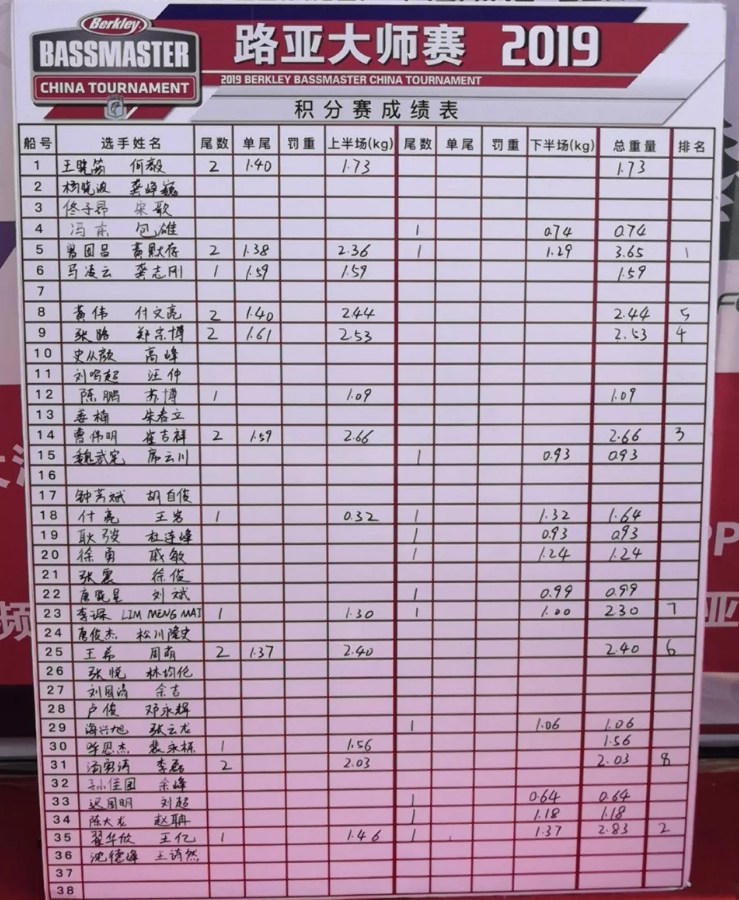 Berkley
BASSMASTER
CHINA TOURNAMENT
路亚大师赛 2019
2019 BERKLEY BASSMASTER CHINA TOURNAMENT
积分赛成绩表
船号 选手姓名 尾数 单尾 罚重 上半场(kg) 尾数 单尾 罚重 下半场(kg) 总重量 排名
1 王晓菊 何毅 2 1.40 1.73 1.73
2 杨晓波 龚峰巍
3 佟子昂 宋歌
4 冯东 包雄 1 0.74 0.74
5 曾国吕 黄默存 2 1.38 2.36 1 1.29 3.65 1
6 马凌云 龚志刚 1 1.59 1.59 1.59
7
8 黄伟 付文亮 2 1.40 2.44 2.44 5
9 张路 郑宗博 2 1.61 2.53 2.53 4
10 史从敬 高峰
11 刘鸣超 汪仲
12 陈鹏 苏博 1 1.09 1.09
13 娄楠 朱春立
14 曹伟明 崔吉祥 2 1.59 2.66 2.66 3
15 魏武宪 席云川 1 0.93 0.93
16
17 钟芳斌 胡自俊
18 付亮 王岩 1 0.32 1 1.32 1.64
19 耿波 杜连峰 1 0.93 0.93
20 徐勇 戚敏 1 1.24 1.24
21 张震 徐俊
22 唐晓星 刘斌 1 0.99 0.99
23 李深 LIM MENG MAI 1 1.30 1 1.00 2.30 7
24 唐俊杰 松川隆史
25 王希 周萌 2 1.37 2.40 2.40 6
26 张悦 林均伦
27 刘国涛 余吉
28 卢俊 邓永辉
29 海兴旭 张云龙 1 1.06 1.06
30 陈恩杰 裴永栋 1 1.56 1.56
31 汤勇涛 李磊 2 2.03 2.03 8
32 孙佳图 余峰
33 迟国明 刘超 1 0.64 0.64
34 陈大龙 赵聃 1 1.18 1.18
35 翟华欣 王亿 1 1.46 1 1.37 2.83 2
36 沈德峰 王诗然
37
38